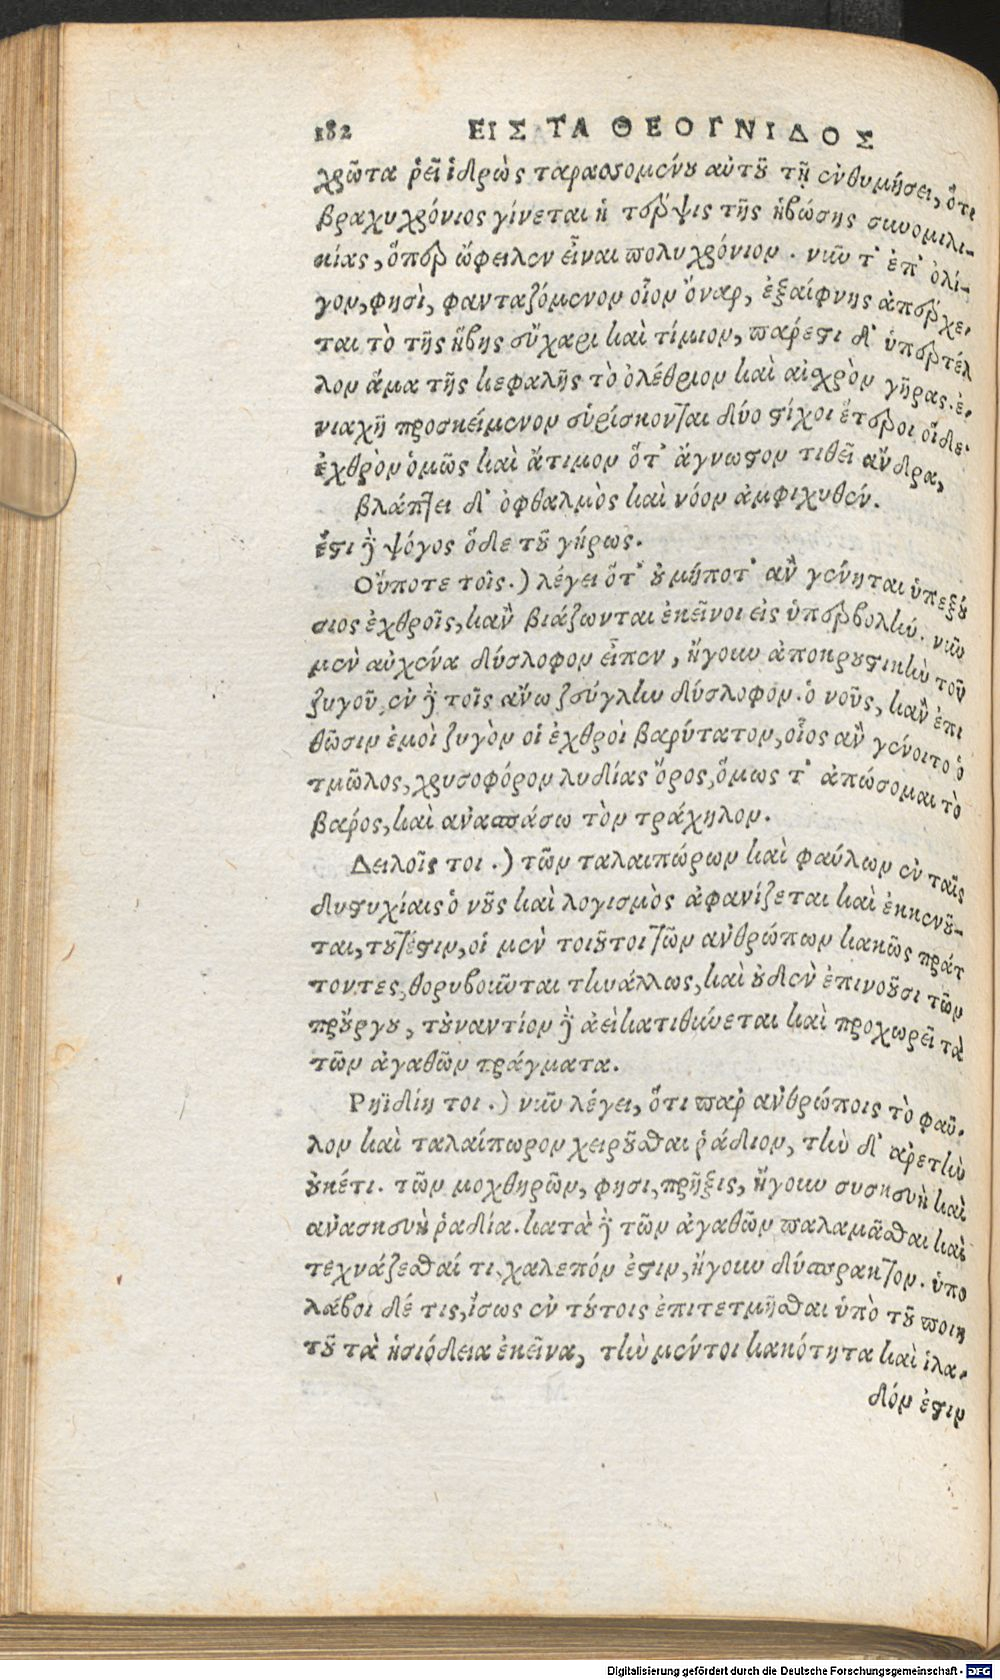 182 ΕΙΣ ΤΑ ΘΕΟΓΝΙΔΟΣ
χρῶτα ῥεῖ ἱδρὼς ταρασσομένου αὐτοῦ τῇ ἐνθυμήσει, ὅτι
βραχυχρόνιος γίνεται ἡ τέρψις τῆς ἡβώσης συνομιλι-
κίας, ὅπερ ὤφειλεν εἶναι πολυχρόνιον. νῦν τ' ἐπ' ὀλί-
γον, φησὶ, φανταζόμενον οἷον ὄναρ, ἐξαίφνης ἀπέρχε-
ται τὸ τῆς ἥβης εὔχαρι καὶ τίμιον, πάρεστι δ' ὑπερτέλ
λον ἅμα τῆς κεφαλῆς τὸ ὀλέθριον καὶ αἰσχρὸν γῆρας. ἐ-
νιαχῆ προσκείμενον εὑρίσκονται δύο στίχοι ἕτεροι οἵδε·
ἐχθρὸν ὁμῶς καὶ ἄτιμον ὅτ' ἄγνωστον τιθεῖ ἄνδρα,
βλάπτει δ' ὀφθαλμὸς καὶ νόον ἀμφιχυθέν.
ἔστι δὲ ψόγος ὅδε τοῦ γήρως.
Οὔποτε τοῖς.) λέγει ὅτ' οὐ μήποτ' ἂν γένηται ὑπεξού
σιος ἐχθροῖς, κἂν βιάζωνται ἐκεῖνοι εἰς ὑπερβολήν. νῦν
μὲν αὐχένα δύσλοφον εἶπεν, ἤγουν ἀποκρουστικὴν τοῦ
ζυγοῦ, ἐν δὲ τοῖς ἄνω ζεύγλην δύσλοφον. ὁ νοῦς, κἂν ἐπι
θῶσιν ἐμοὶ ζυγὸν οἱ ἐχθροὶ βαρύτατον, οἷος ἂν γένοιτο ὁ
τμῶλος, χρυσοφόρον λυδίας ὄρος, ὅμως τ' ἀπώσομαι τὸ
βάρος, καὶ ἀνασπάσω τὸν τράχηλον.
Δειλοῖς τοι.) τῶν ταλαιπώρων καὶ φαύλων ἐν ταῖς
δυστυχίαις ὁ νοῦς καὶ λογισμὸς ἀφανίζεται καὶ ἐκκενοῦ-
ται, τουτέστιν, οἱ μὲν τοιοῦτοι τῶν ἀνθρώπων κακῶς πράτ
τοντες, θορυβοῦνται τηνάλλως, καὶ οὐδὲν ἐπινοοῦσι τῶν
προὔργου, τοὐναντίον δὲ ἀεὶ κατιθύνεται καὶ προχωρεῖ τὰ
τῶν ἀγαθῶν πράγματα.
Ρηϊδίη τοι.) νῦν λέγει, ὅτι παρ ἀνθρώποις τὸ φαῦ-
λον καὶ ταλαίπωρον χειροῦσθαι ῥάδιον, τὴν δ' ἀρετὴν
οὐκέτι. τῶν μοχθηρῶν, φησι, πρῆξις, ἤγουν συσκευὴ καὶ
ἀνασκευὴ ῥαδία. κατὰ δὲ τῶν ἀγαθῶν παλαμᾶσθαι καὶ
τεχνάζεσθαί τι, χαλεπόν ἐστιν, ἤγουν δύσπρακτον. ὑπο
λάβοι δέ τις, ἴσως ἐν τούτοις ἐπιτετμῆσθαι ὑπὸ τοῦ ποιη
τοῦ τὰ ἡσιόδεια ἐκεῖνα, τὴν μέντοι κακότητα καὶ ἰλα-
δόν ἐστιν
Digitalisierung gefördert durch die Deutsche Forschungsgemeinschaft - DFG